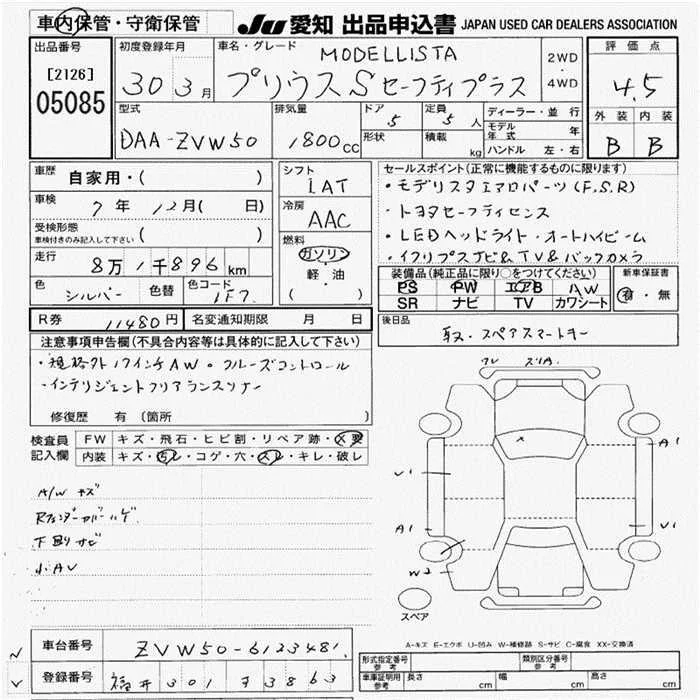 車内保管・守衛保管
JU 愛知 出品申込書 JAPAN USED CAR DEALERS ASSOCIATION
出品番号
[2126]
05085
初度登録年月
30 3月
車名・グレード
MODELLISTA
プリウス S セーフティプラス
2WD
・
4WD
評価点
4.5
外装 内装
B B
型式
DAA-ZVW50
排気量
1800cc
ドア
5
形状
定員
5人
積載
kg
ディーラー・並行
モデル年式 年
ハンドル 左・右
車歴
自家用・( )
車検
7年 12月( 日)
受検形態
車検付きのみ記入して下さい ( )
走行
8万1千896km
色
シルバー
色替
色コード
1F7
シフト
IAT
冷房
AAC
燃料
ガソリン
軽・油
( )
セールスポイント(正常に機能するものに限ります)
・モデリスタエアロパーツ(F.S.R)
・トヨタセーフティセンス
・LEDヘッドライト・オートハイビーム
・イクリプスナビ&TV&バックカメラ
装備品(純正品に限り○をつけてください)
PS PW エアB AW
SR ナビ TV カワシート
新車保証書
有・無
R券 11480円
名変通知期限 月 日
後日品
取・スペアスマートキー
注意事項申告欄(不具合内容等は具体的に記入して下さい)
・規格外17インチAW・クルーズコントロール
・インテリジェントクリアランスソナー
修復歴 有(箇所 )
検査員
記入欄
FW キズ・飛石・ヒビ割・リペア跡・X要
内装 キズ・汚レ・コゲ・穴・スレ・キレ・破レ
A/W キズ
下廻サビ
小AV
A1
U1
A1
U1
W2
スペア
A-キズ E-エクボ U-凹み W-補修跡 S-サビ C-腐食 XX-交換済
車台番号 ZVW50-6123481
登録番号 福井 301 ア 3863
型式指定番号
参考
類別区分番号
参考
車庫証明用
参考
長さ cm 幅 cm 高さ cm